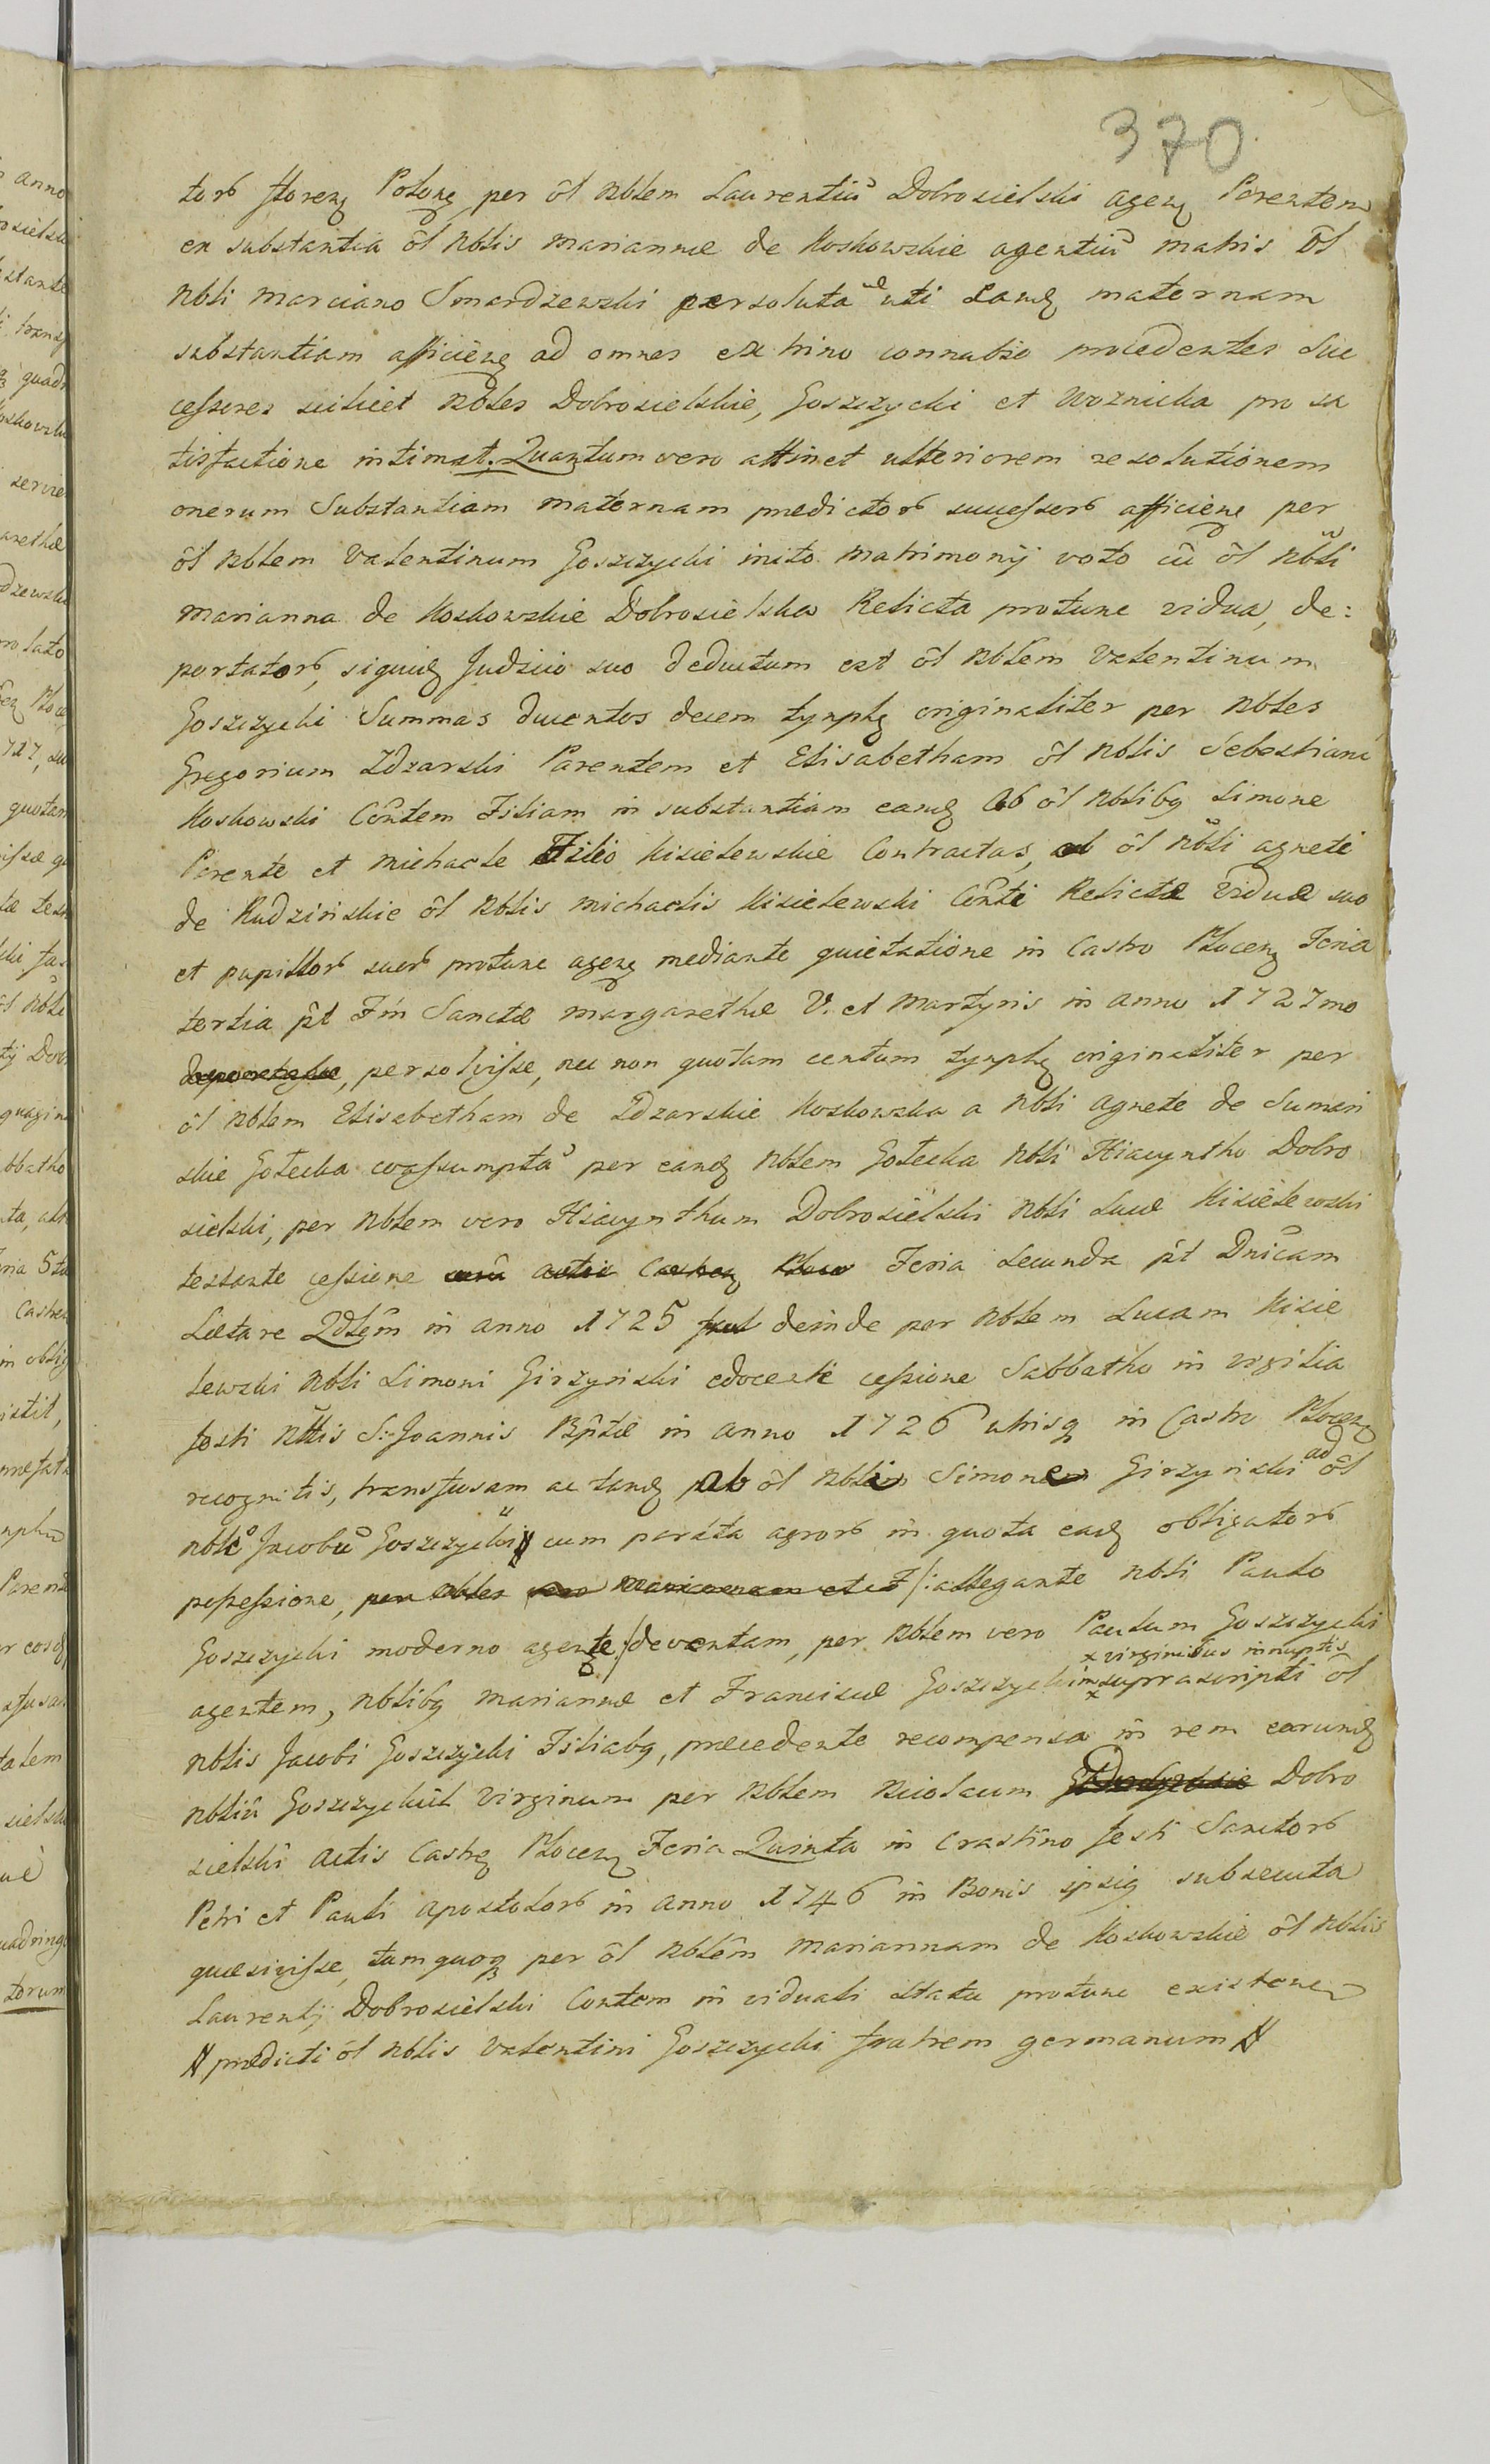 370
torб floreng Polong per ôl Nblem Laurentiũ Dobrosielski ageng Parentem
ex substantia ôl Nblis Mariannæ de Koskowskie agentiũ matris ôl
Nbli Marciano Smardzewski persoluta uti eandz maternam
substantiam afficieng ad omnes ex trino connubio procedentes Suc
cessores scilicet Nbles Dobrosielskie, Goszczycki et Woznicka pro sa
tisfactione intimat. Quantum vero attinet ulteriorem resolutionem
onerum Substantiam maternam prædictorб successorб afficiene per
ôl Nblem Valentinum Goszczycki inito matrimonij voto cũ ôl Nbli
Marianna de Koskowskie Dobrosielska Relicta protunc vidua, de:
portatorб, siquidz Judicio suo deductum est ôl Nblem Valentinum
Goszczycki Summas ducentos decem tymphz originaliter per Nbles
Gregorium Zdzarski Parentem et Elisabetham ôl Nblis Sebastiani
Koskowski Côntem Filiam in substantiam eandz ab ôl Nblibg Simone
Parente et Michaele Filio Kisielewskie Contractas, ôl Nbli Agneti
de Rudzinskie ôl Nblis Michaelis Kisielewski Cônti Relictæ Viduæ suo
et pupillorб suorб protunc ageng mediante quietatione in Castro Plocenz Feria
tertia p̂t Fm̃ Sanctæ Margarethæ V. et Martyris in anno 1727mo
persolvisse, nec non quotam centum tymphz originaliter per
ôl Nblem Elisabetham de Zdzarskie Koskowska a Nbli Agnete de Sumin
skie Golecka conssumptã per eandz Nblem Golecka Nbli Hiacyntho Dobro
sielski, per Nblem vero Hiacynthum Dobrosielski Nbli Lucæ Kisielewski
testante cessione Feria Secunda p̂t Dnĩcam
Lætare Qdlgm̃ in anno 1725 deinde per Nblem Lucam Kisie
lewski Nbli Simoni Girzynski edocente cessione Sabbatho in vigilia
festi Nttis S. Joannis Bp̃tæ in anno 1726 utrisq in Castro Plocenz
recognitis, transfusam ac tandz ab ôl Nbli Simone Girzynski ad ôl
Nblẽ Jacobũ Goszczycki # cum parata agrorб in quota eadz obligatorб
possessione, /: allegante Nbli Paulo
Goszczycki moderno agente :/ deventam, per Nblem vero Paulum Goszczycki
x virginibus innuptis
agentem, Nblibg Mariannæ et Franciscæ Goszczyckim x suprascripti ôl
Nblis Jacobi Goszczycki Filiabg, præcedente recompensa in rem earundz
Nbliũ Goszczyckich Virginum per Nblem Nicolaum Dobro
sielski Actis Castrz Plocenz Feria Quinta in Crastino festi Sanctorб
Petri et Pauli Apostolorб in anno 1746 in Bonis ipsig subsecuta
quæsivisse, tum quoqз per ôl Nblêm Mariannam de Koskowskie ôl Nblis
Laurentij Dobrosielski Contem in viduali statu protunc existene
# prædicti ôl Nblis Valentini Goszczycki fratrem germanum #